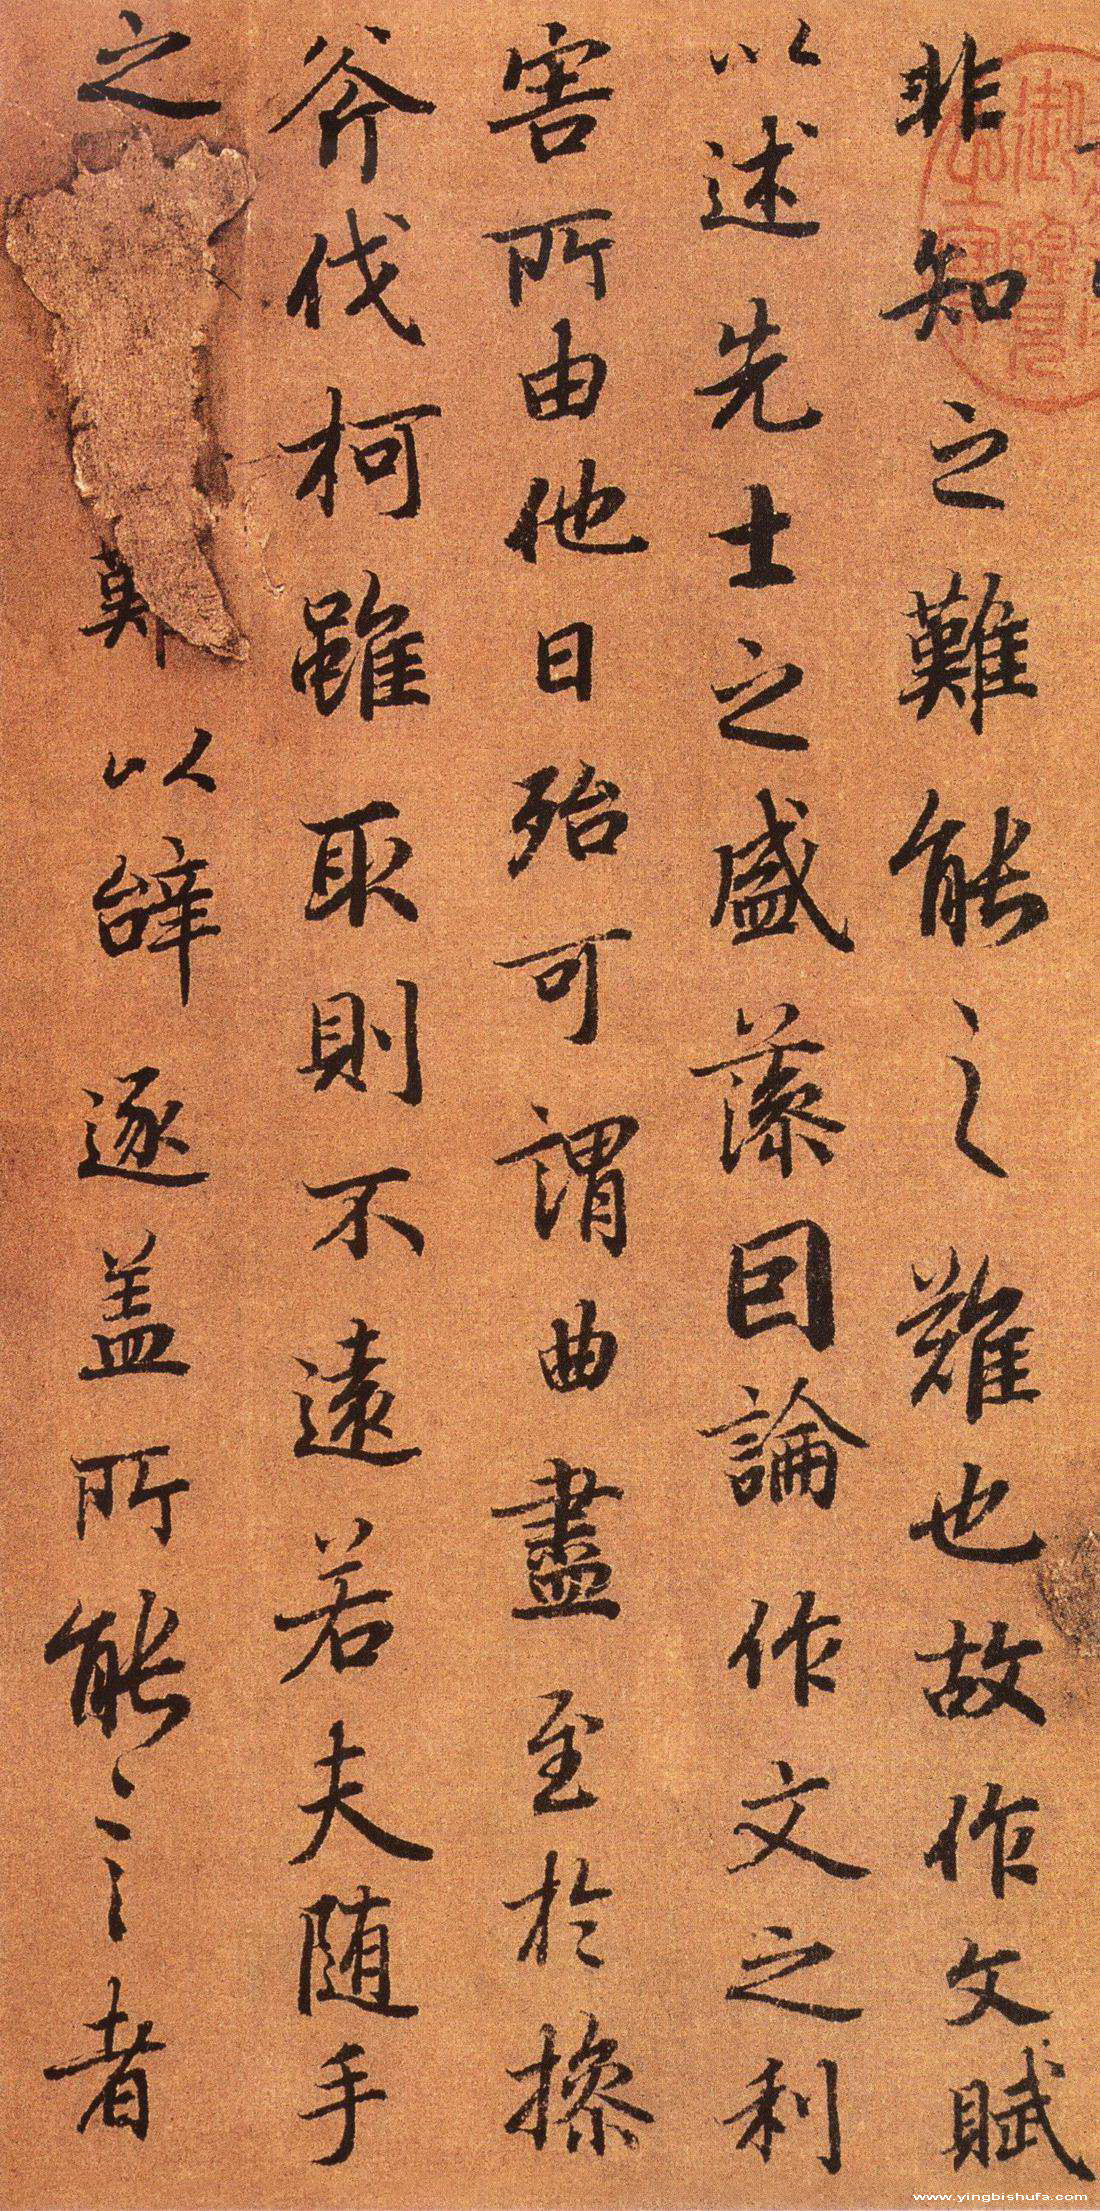 非知之難能之難也故作文賦
以述先士之盛藻因論作文之利
害所由他日殆可謂曲盡至於操
斧伐柯雖取則不遠若夫随手
之以辝逐盖所能言者
www.yingbishufa.com